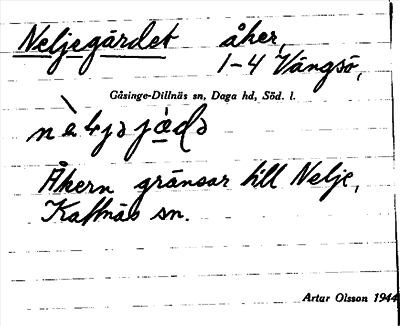 Neljegärdet åker,
1-4 Vängsö,
Gåsinge-Dillnäs sn, Daga hd, Söd. l.
Åkern gränsar till Nelje,
Kattnäs sn.
Artur Olsson 1944